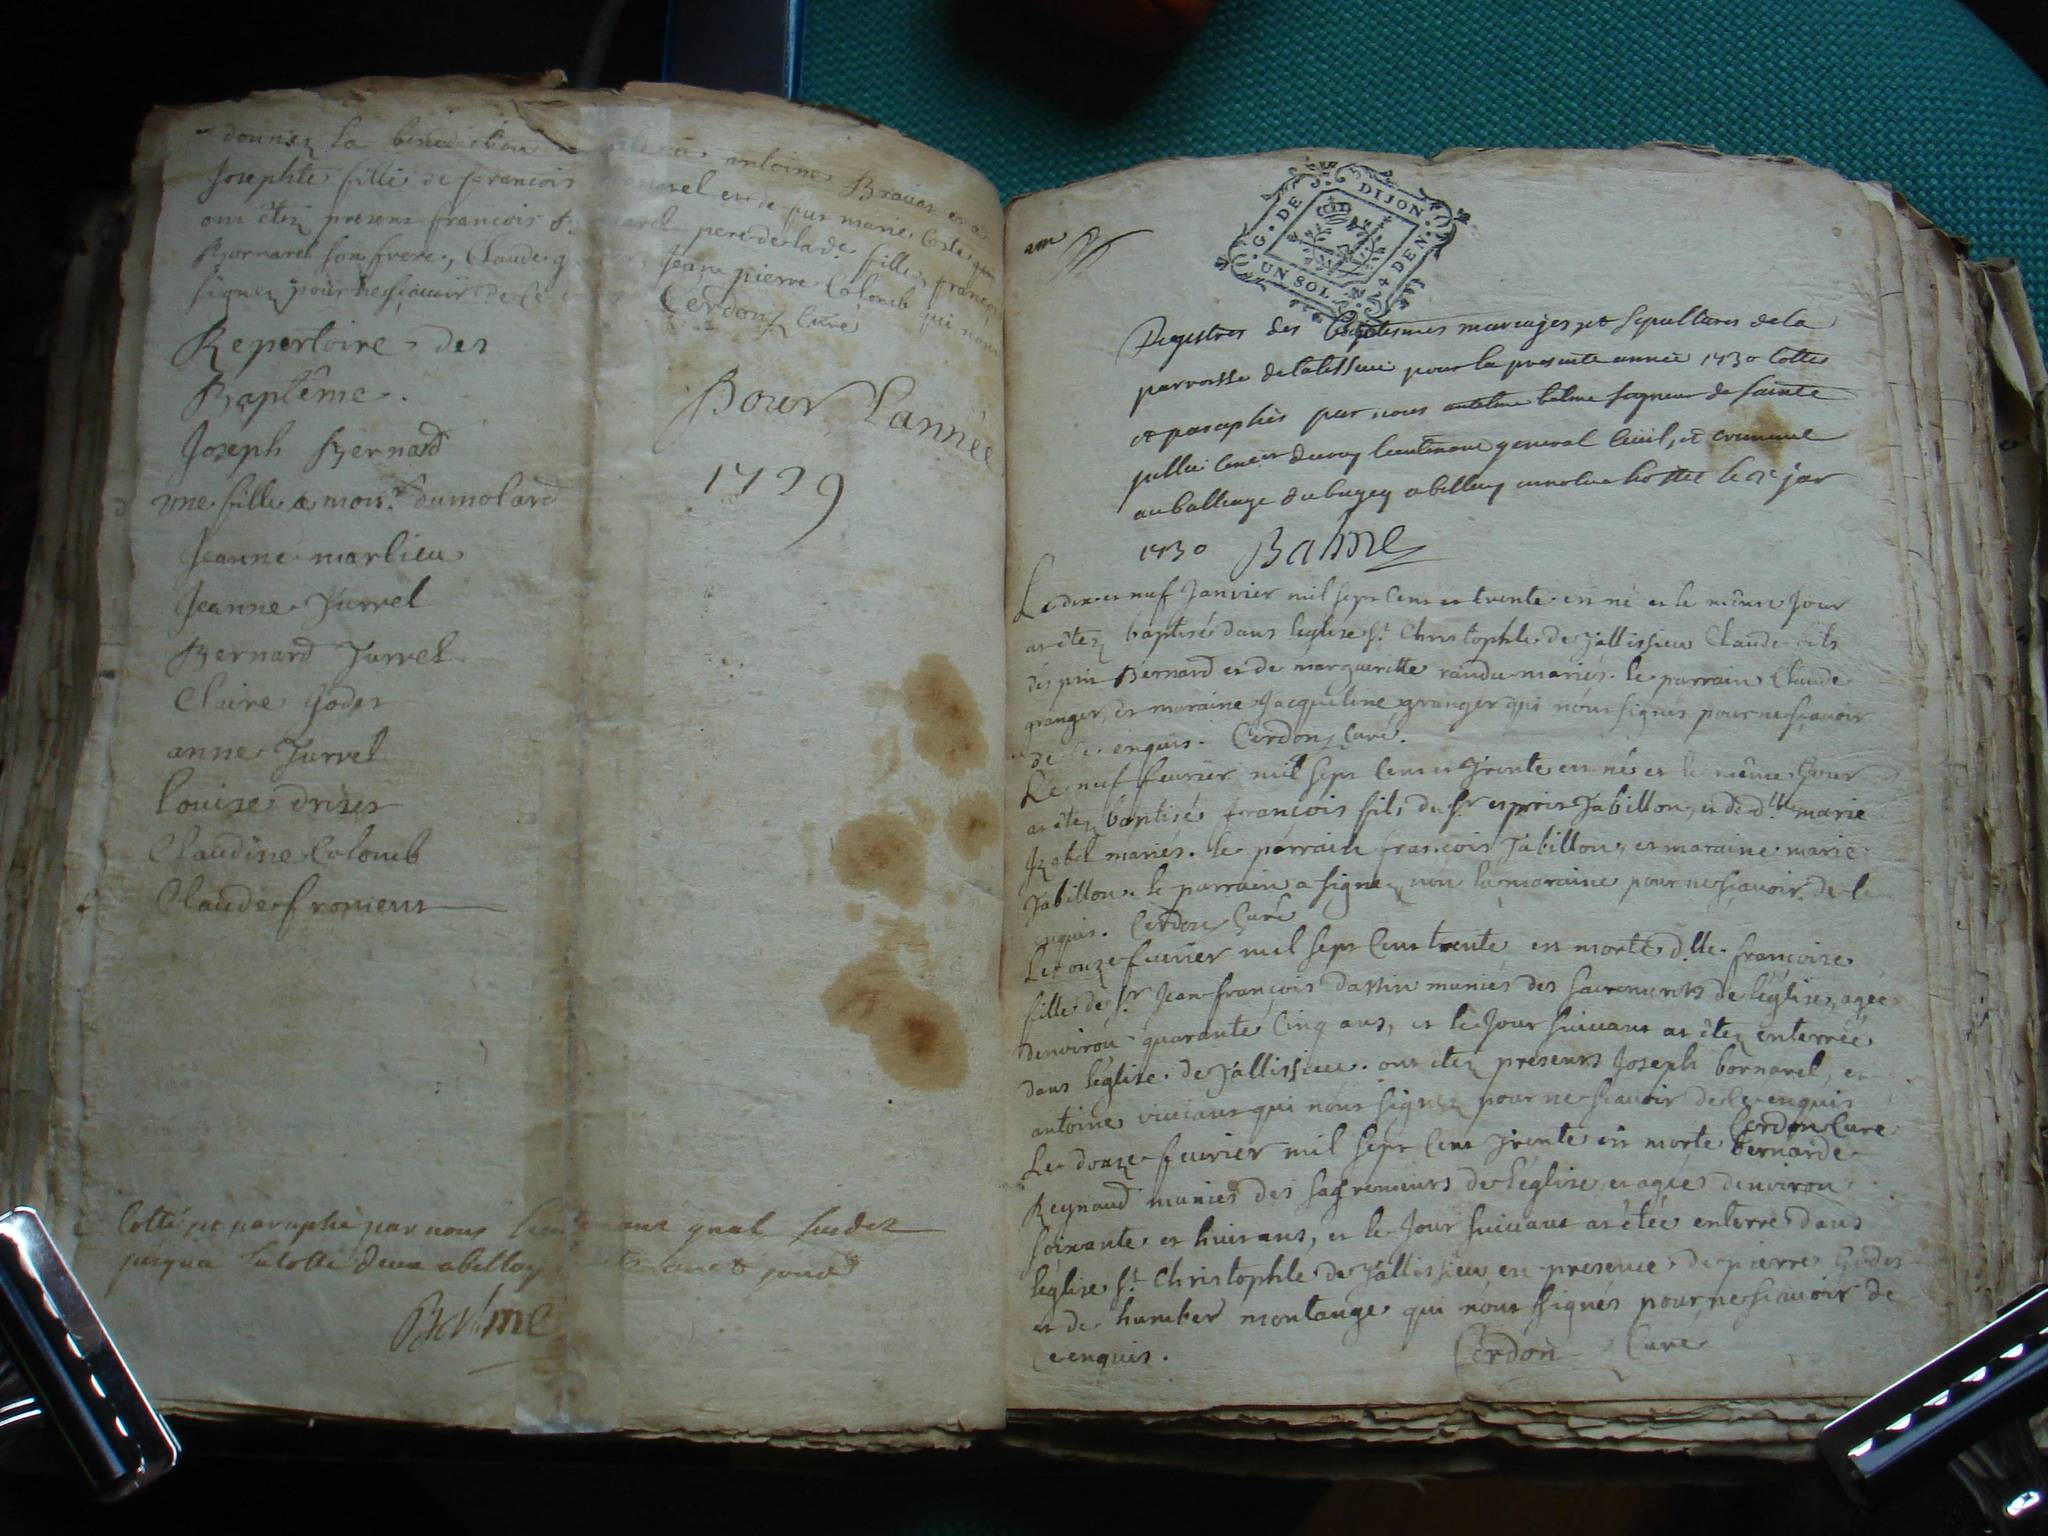 donnez la bénédiction antoine Bravas et a
Josephte fille de francois et de par marie Coste qui
ont êtez presens francois pere de lade. fille, francois
Bornarel son frere, Claude jean pierre Colomb qui nont
signez pour ne scavoir de ce Cerdon Curé
Repertoire des
Baptême.
Pour L'année
1729
Joseph Bernard
une fille a mons.r dumolard
Jeanne marlieu
Jeanne Jurrel
Bernard Jurrel
Claire godet
anne Jurrel
Louise
Claudine Colomb
Claude
Cotté et paraphé par nous gnal
jusqua
Balme
G. DE DIJON
UN SOL 4 DEN
Registres des Baptesmes mariages et sepultures de la
parroisse de pour la presente année 1730 cottes
et paraphés par nous antelme balme seigneur de sainte
julie lieutenant general Civil, et criminel
au balliage du bugey a belley hostel le
1730 Balme
Le dix et neuf Janvier mil sept Cent et trente est né et le même Jour
at êtez baptisé dans leglise st. Christophle de Jallissieu Claude fils
despri Bernard et de marguerite randu mariés. le parrain Claude
granger, et maraine Jacqueline granger qui nont signés pour ne scavoir
de ce enquis. Cerdon Curé.
Le neuf feuvrier mil sept Cent et Trente est né et le même Jour
at êtez baptisé françois fils du sr. esprit Tabillon, et de dlle marie
Izabel mariés. le parrain francois Tabillon, et maraine marie
Tabillon. le parrain a signez, non la maraine pour ne scavoir de ce
enquis. Cerdon Curé
Le onze feuvrier mil sept Cent trente est morte dlle. francoise
fille de sr. Jean françois dattin munies des sacrements de l'église, agée
denviron quarante Cinq ans, et le Jour suivant at êtez enterrée
dans l'église de Jallissieu. ont êtez presents Joseph bornarel, et
antoine qui nont signez pour ne scavoir de ce enquis
Cerdon Curé
Le douze feuvrier mil sept Cent Trente est morte bernarde
Reynaud munies des sacrements de l'église, et agées denviron
soixante et huit ans, et le Jour suivant at êtée enterré dans
l'église st. Christophle de Jallissieu en presence de pierre Godet
et de humber montange qui nont signés pour ne scavoir de
ce enquis. Cerdon Curé